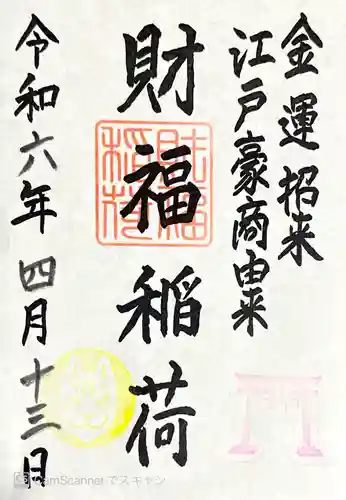 金運招来
江戸豪商由来
財福稲荷
財福
稲荷
令和六年四月十三日
CamScanner でスキャン